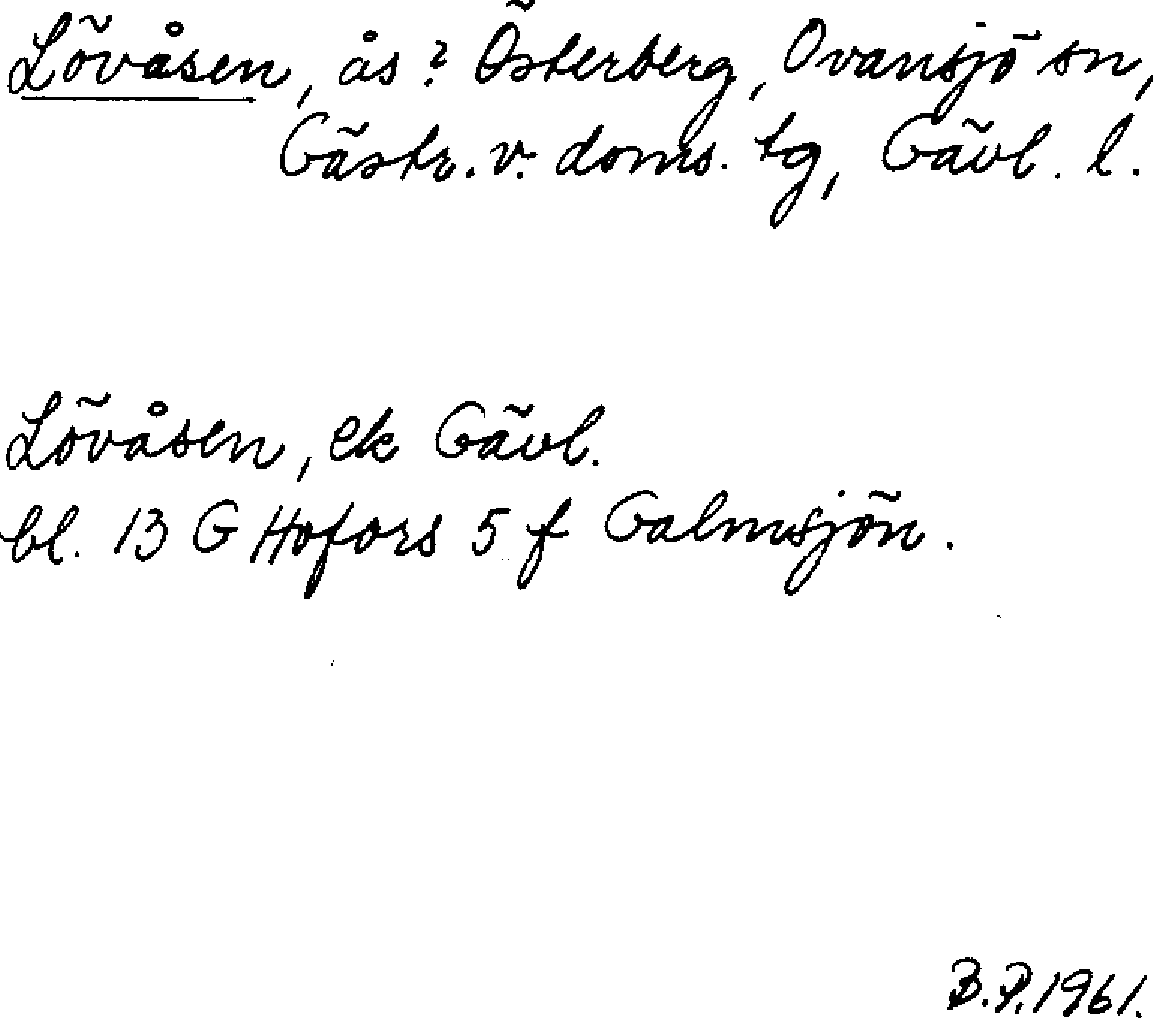 Lövåsen, ås? Österberg, Ovansjö sn,
Gästr. v. doms. tg, Gävl. l.
Lövåsen, ek Gävl.
bl. 13 G Hofors 5 f Galmsjön.
B.P. 1961.